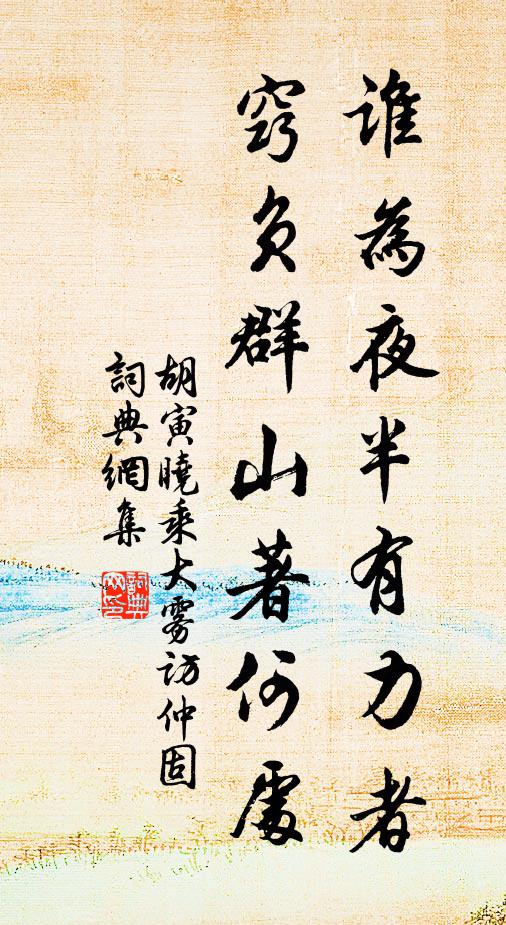 誰為夜半有力者
竊負群山著何處
胡寅曉乘大雾訪仲固
詞典網集